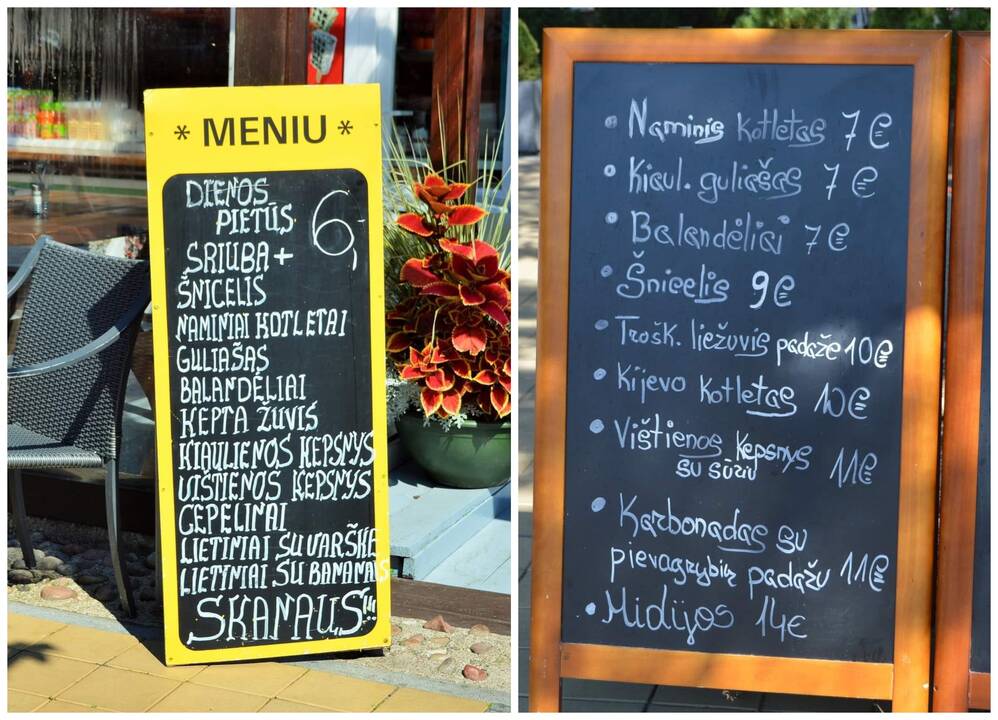 * MENIU *
DIENOS
PIETŪS 6,
SRIUBA+
ŠNICELIS
NAMINIAI KOTLETAI
GULIAŠAS
BALANDĖLIAI
KEPTA ŽUVIS
KIAULIENOS KEPSNYS
VIŠTIENOS KEPSNYS
CEPELINAI
LIETINIAI SU VARŠKE
LIETINIAI SU BANANAIS
SKANAUS!!
• Naminis kotletas 7 €
• Kiaul. guliašas 7 €
• Balandėliai 7 €
• Šnicelis 9 €
• Trošk. liežuvis padaže 10 €
• Kijevo kotletas 10 €
• Vištienos kepsnys
su sūriu 11 €
• Karbonadas su
pievagrybių padažu 11 €
• Midijos 14 €